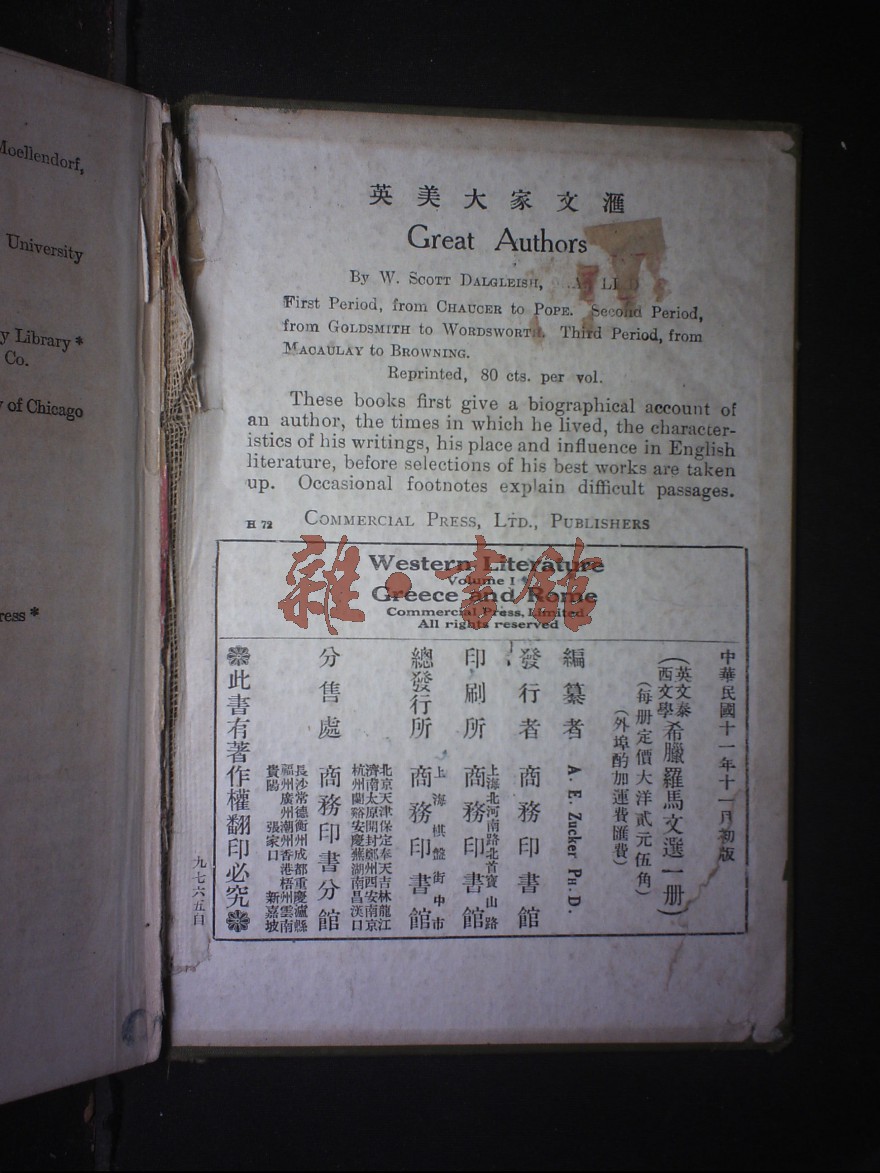 Moellendorf,
University
y Library *
Co.
y of Chicago
ress *
英美大家文滙
Great Authors
By W. Scott Dalgleish, LL.D
First Period, from Chaucer to Pope. Second Period,
from Goldsmith to Wordsworth. Third Period, from
Macaulay to Browning.
Reprinted, 80 cts. per vol.
These books first give a biographical account of
an author, the times in which he lived, the character-
istics of his writings, his place and influence in English
literature, before selections of his best works are taken
up. Occasional footnotes explain difficult passages.
H 72 Commercial Press, Ltd., Publishers
雜·書館
Western Literature
Volume I
Greece and Rome
Commercial Press, Limited.
All rights reserved
中華民國十一年十一月初版
(英文泰西文學希臘羅馬文選一册)
(每册定價大洋貳元伍角)
(外埠酌加運費匯費)
編纂者 A. E. Zucker Ph. D.
發行者 商務印書館
印刷所 上海北河南路北首寶山路 商務印書館
總發行所 上海棋盤街中市 商務印書館
分售處 商務印書分館
北京天津保定奉天吉林龍江
濟南太原開封鄭州西安南京
杭州蘭谿安慶蕪湖南昌漢口
長沙常德衡州成都重慶瀘縣
福州廣州潮州香港梧州雲南
貴陽 張家口 新嘉坡
此書有著作權翻印必究
九七六五自